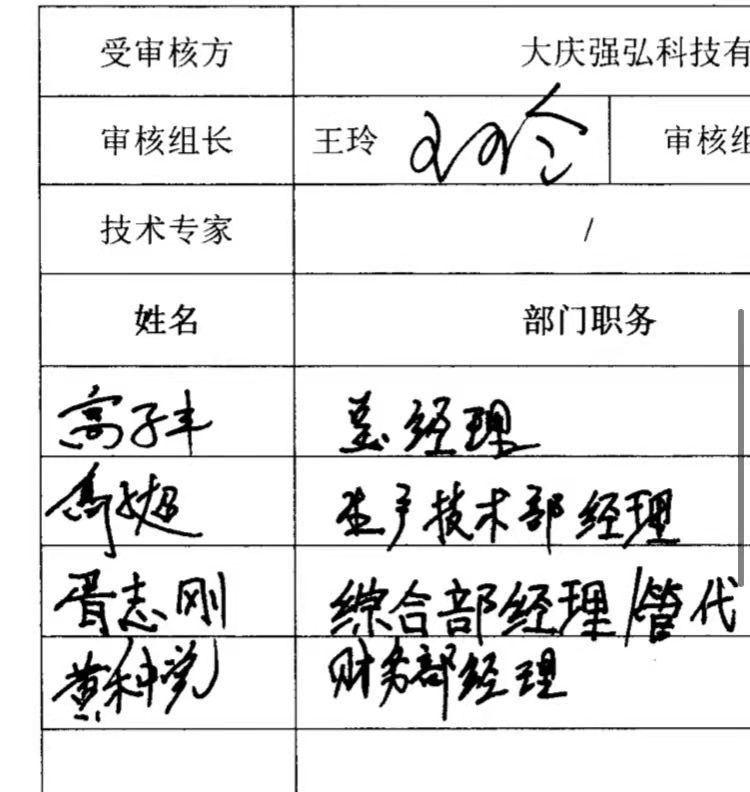 受审核方 大庆强弘科技有
审核组长 王玲 王玲 审核组
技术专家 /
姓名 部门职务
高子丰 总经理
生产技术部经理
胥志刚 综合部经理/管代
黄 财务部经理